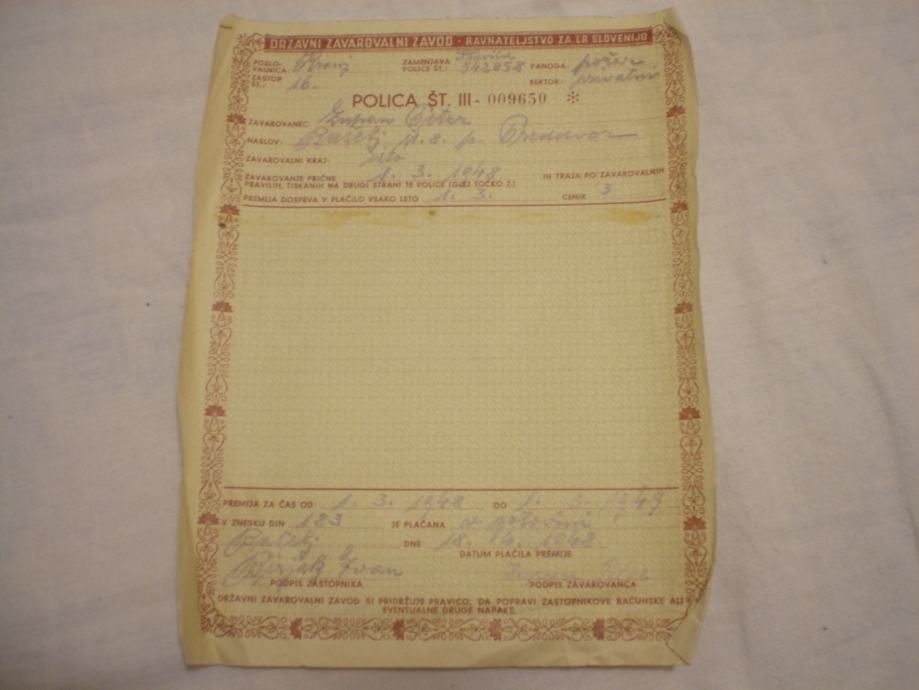 DRŽAVNI ZAVAROVALNI ZAVOD - RAVNATELJSTVO ZA LR SLOVENIJO
POSLOVALNICA: Kranj ZAMENJAVA POLICE ŠT.: 542858 PANOGA: požar
ZASTOP ŠT.: 16. SEKTOR: privatni
POLICA ŠT. III- 009650 *
ZAVAROVANEC: Zupan Peter
NASLOV: Bašelj št. 8. p. Preddvor
ZAVAROVALNI KRAJ: isto
ZAVAROVANJE PRIČNE 1. 3. 1948 IN TRAJA PO ZAVAROVALNIH
PRAVILIH, TISKANIH NA DRUGI STRANI TE POLICE (GLEJ TOČKO 2.)
PREMIJA DOSPEVA V PLAČILO VSAKO LETO 1. 3. CENIK 3
PREMIJA ZA ČAS OD 1. 3. 1948 DO 1. 3. 1949
V ZNESKU DIN 183 JE PLAČANA v gotovini
Bašelj DNE 18. 4. 1948
DATUM PLAČILA PREMIJE
Ivan
PODPIS ZASTOPNIKA PODPIS ZAVAROVANCA
DRŽAVNI ZAVAROVALNI ZAVOD SI PRIDRŽUJE PRAVICO, DA POPRAVI ZASTOPNIKOVE RAČUNSKE ALI
EVENTUALNE DRUGE NAPAKE.